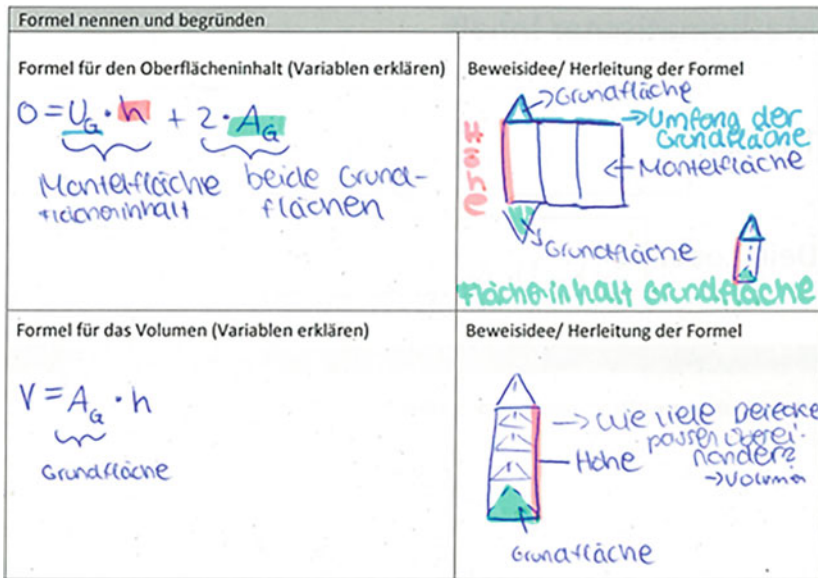 Formel nennen und begründen
Formel für den Oberflächeninhalt (Variablen erklären)
O = U_G · h + 2 · A_G
Mantelfläche beide Grund-
flächeninhalt flächen
Beweisidee/ Herleitung der Formel
Grundfläche
→ Umfang der
Grundfläche
← Mantelfläche
Höhe
Grundfläche
Flächeninhalt Grundfläche
Formel für das Volumen (Variablen erklären)
V = A_G · h
Grundfläche
Beweisidee/ Herleitung der Formel
→ Wie viele Dreiecke
passen überei-
nander?
→ Volumen
Höhe
Grundfläche